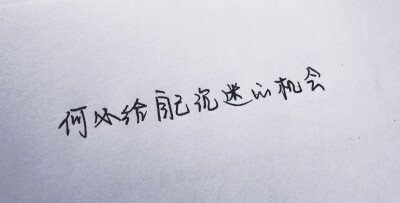 何必给自己沉迷的机会